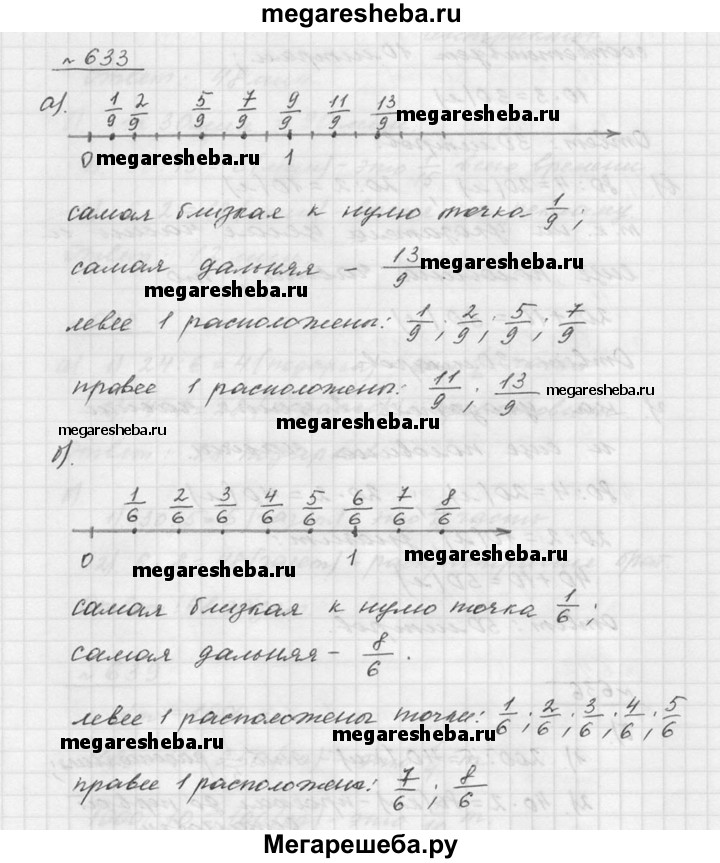 megaresheba.ru
№ 633
а). 1/9 2/9 5/9 7/9 9/9 11/9 13/9 megaresheba.ru
0 megaresheba.ru 1
самая близкая к нулю точка 1/9;
самая дальняя – 13/9 megaresheba.ru
megaresheba.ru
левее 1 расположены: 1/9; 2/9; 5/9; 7/9
правее 1 расположены: 11/9; 13/9 megaresheba.ru
megaresheba.ru megaresheba.ru
б).
1/6 2/6 3/6 4/6 5/6 6/6 7/6 8/6
0 1
megaresheba.ru megaresheba.ru
самая близкая к нулю точка 1/6;
самая дальняя – 8/6.
левее 1 расположены точки: 1/6; 2/6; 3/6; 4/6; 5/6
megaresheba.ru megaresheba.ru
правее 1 расположена: 7/6; 8/6
Мегарешеба.ру